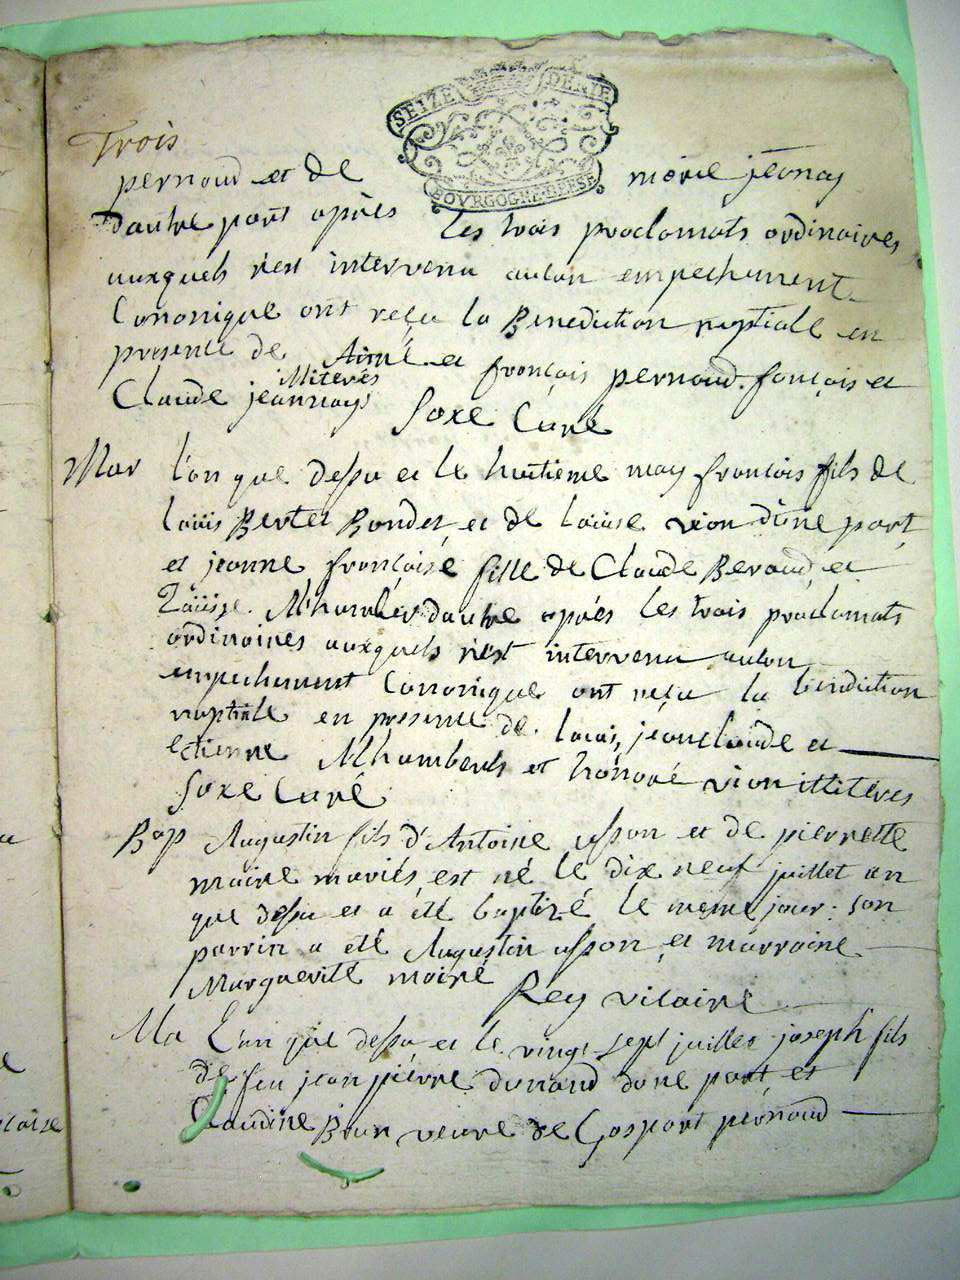 SEIZE DENIE
BOVRGOGNE BRESSE
Trois
pernoud et de marie jeanay
dautre part après les trois proclamats ordinaires
auxquels n'est intervenu aucun empechement
Canonique ont reçu la Benediction nuptialle en
presence de Aimé et françois pernoud. fonçois et
Claude jeannays illiterés
Saxe Curé
Mar l'an que dessu et le huitieme may françois fils de
Loüis Bertet Bondet et de Loüise vion d'une part
et jeanne françoise fille de Claude Beraud et
Loüise Mhumbert dautre après les trois proclamats
ordinaires auxquels n'est intervenu aucun
empechement Canonique ont reçu la bendiction
nuptiale en presence de Louis, jeanclaude et
etienne Mhumberts et honoré vion illiteres
Saxe Curé
Bap Augustin fils d'Antoine usson et de pierrette
maire mariés est né le dix neuf juillet an
que dessu et a été baptizé le meme jour: son
parrin a eté Augustin usson et marraine
Marguerite mairé
Rey vicaire
Ma L'an que dessu et le vingt sept juillet joseph fils
de feu jean pierre dunand dune part et
Claudine Brun veuve de Gaspart pernoud